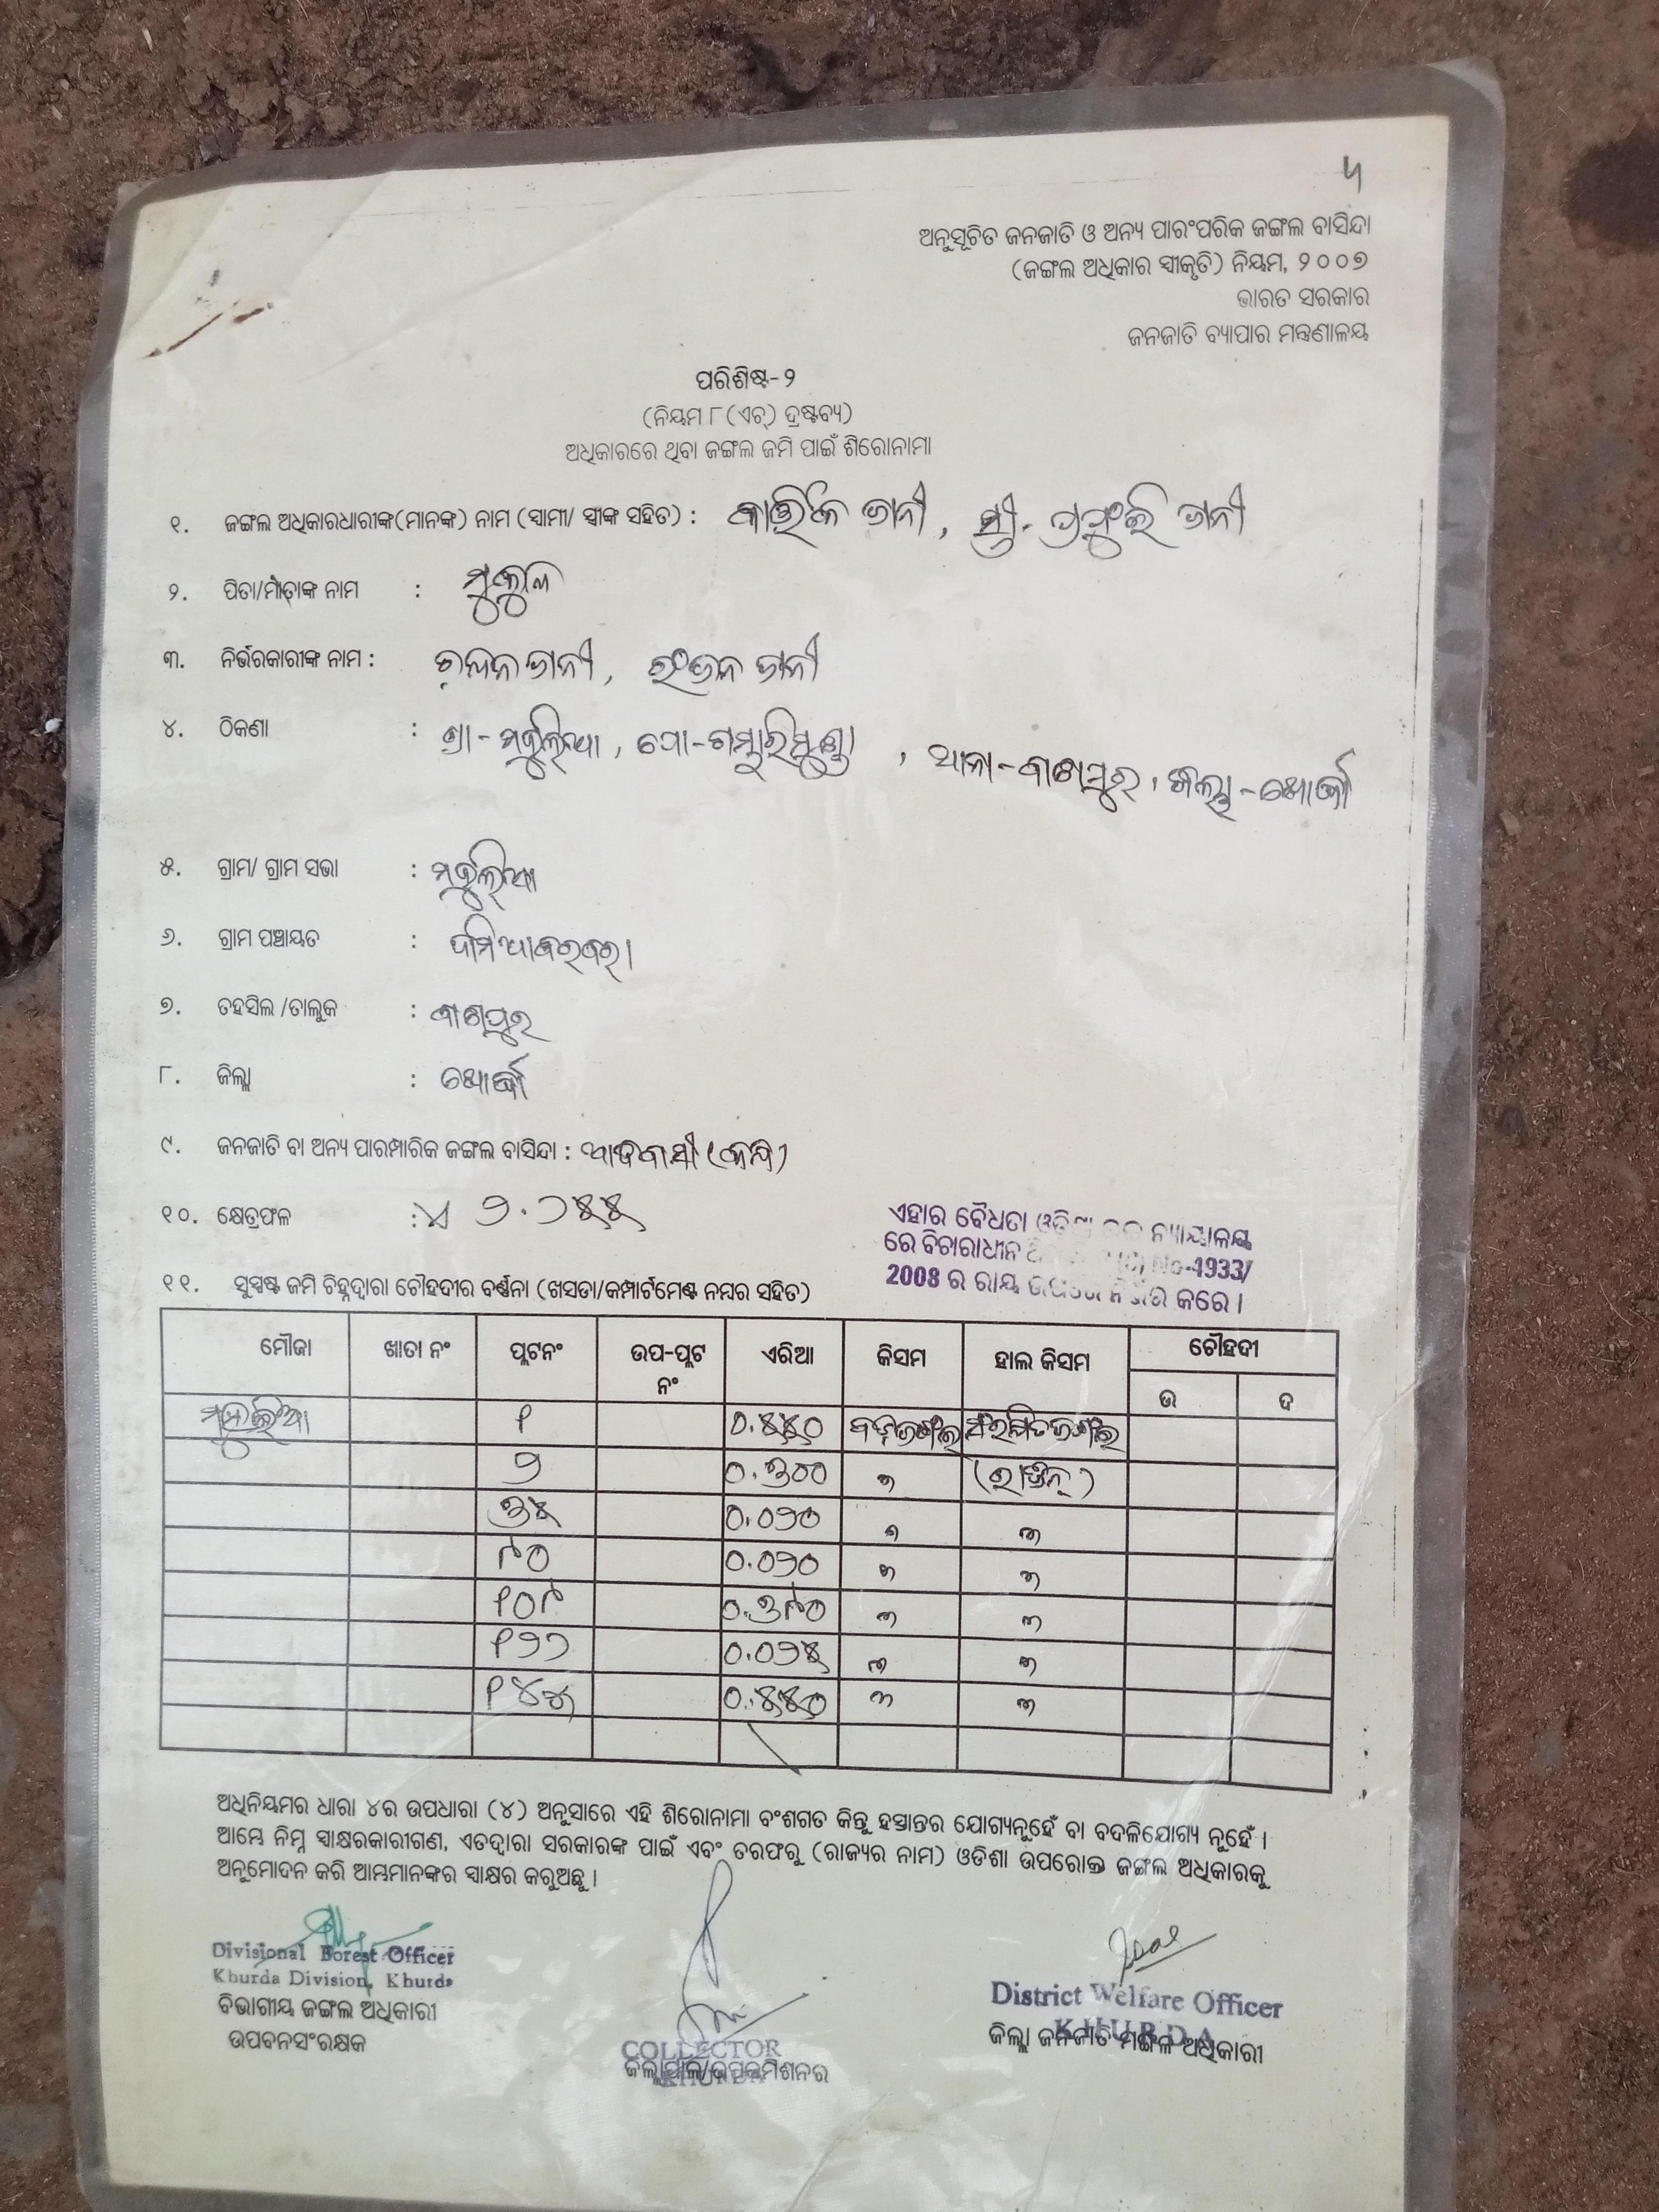 ୫
ଅନୁସୂଚିତ ଜନଜାତି ଓ ଅନ୍ୟ ପାରଂପରିକ ଜଙ୍ଗଲ ବାସିନ୍ଦା
(ଜଙ୍ଗଲ ଅଧିକାର ସ୍ୱୀକୃତି) ନିୟମ, ୨୦୦୭
ଭାରତ ସରକାର
ଜନଜାତି ବ୍ୟାପାର ମନ୍ତ୍ରଣାଳୟ
ପରିଶିଷ୍ଟ-୨
(ନିୟମ ୮(ଏଚ୍) ଦ୍ରଷ୍ଟବ୍ୟ)
ଅଧିକାରରେ ଥିବା ଜଙ୍ଗଲ ଜମି ପାଇଁ ଶିରୋନାମା
୧. ଜଙ୍ଗଲ ଅଧିକାରଧାରୀଙ୍କ(ମାନଙ୍କ) ନାମ (ସ୍ୱାମୀ/ ସ୍ତ୍ରୀଙ୍କ ସହିତ) : କାର୍ତ୍ତିକ ଜାନୀ, ସ୍ତ୍ରୀ- ଜାନୀ
୨. ପିତା/ମାତାଙ୍କ ନାମ : ମୁକୁଳ
୩. ନିର୍ଭରକାରୀଙ୍କ ନାମ : ଜାନୀ, ରଂଜନ ଜାନୀ
୪. ଠିକଣା : ଗ୍ରା- , ପୋ-ଗମ୍ଭାରିମୁଣ୍ଡା , ଥାନା-ବାଣପୁର, ଜିଲ୍ଲା-ଖୋର୍ଦ୍ଧା
୫. ଗ୍ରାମ/ ଗ୍ରାମ ସଭା :
୬. ଗ୍ରାମ ପଞ୍ଚାୟତ :
୭. ତହସିଲ /ତାଲୁକ : ବାଣପୁର
୮. ଜିଲ୍ଲା : ଖୋର୍ଦ୍ଧା
୯. ଜନଜାତି ବା ଅନ୍ୟ ପାରମ୍ପାରିକ ଜଙ୍ଗଲ ବାସିନ୍ଦା : ଆଦିବାସୀ (କନ୍ଧ)
୧୦. କ୍ଷେତ୍ରଫଳ : ୨.୨୫୫
ଏହାର ବୈଧତା ନ୍ୟାୟାଳୟ
ରେ ବିଚାରାଧୀନ No-4933/
2008 ର ରାୟ ଉପରେ ନିର୍ଭର କରେ ।
୧୧. ସୁସ୍ପଷ୍ଟ ଜମି ଚିହ୍ନଦ୍ୱାରା ଚୌହଦୀର ବର୍ଣ୍ଣନା (ଖସଡା/କମ୍ପାର୍ଟମେଣ୍ଟ ନମ୍ବର ସହିତ)
ମୌଜା ଖାତା ନଂ ପ୍ଲଟନଂ ଉପ-ପ୍ଲଟ ନଂ ଏରିଆ କିସମ ହାଲ କିସମ ଚୌହଦୀ
ଉ ଦ
୧ ୦.୫୫୦ ବଡ଼ଜଙ୍ଗଲ ସଂରକ୍ଷିତଜଙ୍ଗଲ
୨ ୦.୩୦୦ ୬୬
୩୫ ୦.୦୨୦
୯୦ ୦.୦୨୦
୧୦୯ ୦.୩୯୦
୧୨୨ ୦.୦୨୫
୧୪୫ ୦.୫୫୦
ଅଧିନିୟମର ଧାରା ୪ର ଉପଧାରା (୪) ଅନୁସାରେ ଏହି ଶିରୋନାମା ବଂଶଗତ କିନ୍ତୁ ହସ୍ତାନ୍ତର ଯୋଗ୍ୟନୁହେଁ ବା ବଦଳିଯୋଗ୍ୟ ନୁହେଁ ।
ଆମ୍ଭେ ନିମ୍ନ ସ୍ୱାକ୍ଷରକାରୀଗଣ, ଏତଦ୍ୱାରା ସରକାରଙ୍କ ପାଇଁ ଏବଂ ତରଫରୁ (ରାଜ୍ୟର ନାମ) ଓଡିଶା ଉପରୋକ୍ତ ଜଙ୍ଗଲ ଅଧିକାରକୁ
ଅନୁମୋଦନ କରି ଆମ୍ଭମାନଙ୍କର ସ୍ୱାକ୍ଷର କରୁଅଛୁ ।
Divisional Forest Officer
Khurda Division, Khurda
ବିଭାଗୀୟ ଜଙ୍ଗଲ ଅଧିକାରୀ
ଉପବନସଂରକ୍ଷକ
COLLECTOR
KHURDA
ଜିଲ୍ଲାପାଳ/ଉପକମିଶନର
District Welfare Officer
KHURDA
ଜିଲ୍ଲା ଜନଜାତି ମଙ୍ଗଳ ଅଧିକାରୀ